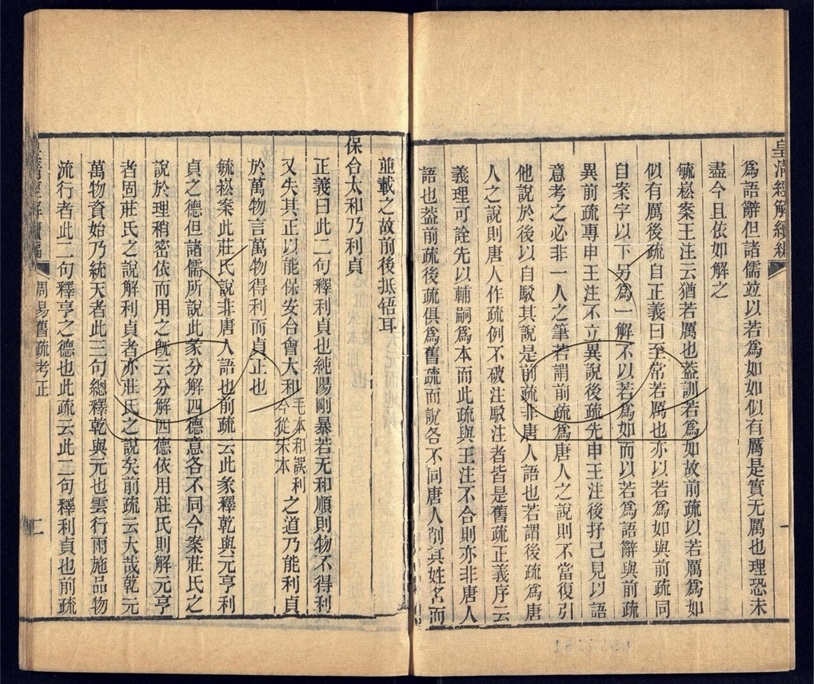 皇清經解續編
爲語辭但諸儒竝以若爲如如似有厲是實无厲也理恐未
盡今且依如解之
毓崧案王注云猶若厲也葢訓若爲如故前疏以若厲爲如
似有厲後疏自正義曰至常若厲也亦以若爲如與前疏同
自案字以下另爲一解不以若爲如而以若爲語辭與前疏
異前疏專申王注不立異說後疏先申王注後抒己見以語
意考之必非一人之筆若謂前疏爲唐人之說則不當復引
他說於後以自駁其說是前疏非唐人語也若謂後疏爲唐
人之說則唐人作疏例不破注駁注者皆是舊疏正義序云
義理可詮先以輔嗣爲本而此疏與王注不合則亦非唐人
語也葢前疏後疏俱爲舊疏而說各不同唐人削其姓名而
竝載之故前後抵牾耳
保合太和乃利貞
正義曰此二句釋利貞也純陽剛暴若无和順則物不得利
又失其正以能保安合會大和毛本和誤利今從宋本之道乃能利貞
於萬物言萬物得利而貞正也
毓崧案此莊氏說非唐人語也前疏云此彖釋乾與元亨利
貞之德但諸儒所說此彖分解四德意各不同今案莊氏之
說於理稍密依而用之旣云分解四德依用莊氏則解元亨
者固莊氏之說解利貞者亦莊氏之說矣前疏云大哉乾元
萬物資始乃統天者此三句總釋乾與元也雲行雨施品物
流行者此二句釋亨之德也此疏云此二句釋利貞也前疏
皇清經解續編
周易舊疏考正
二